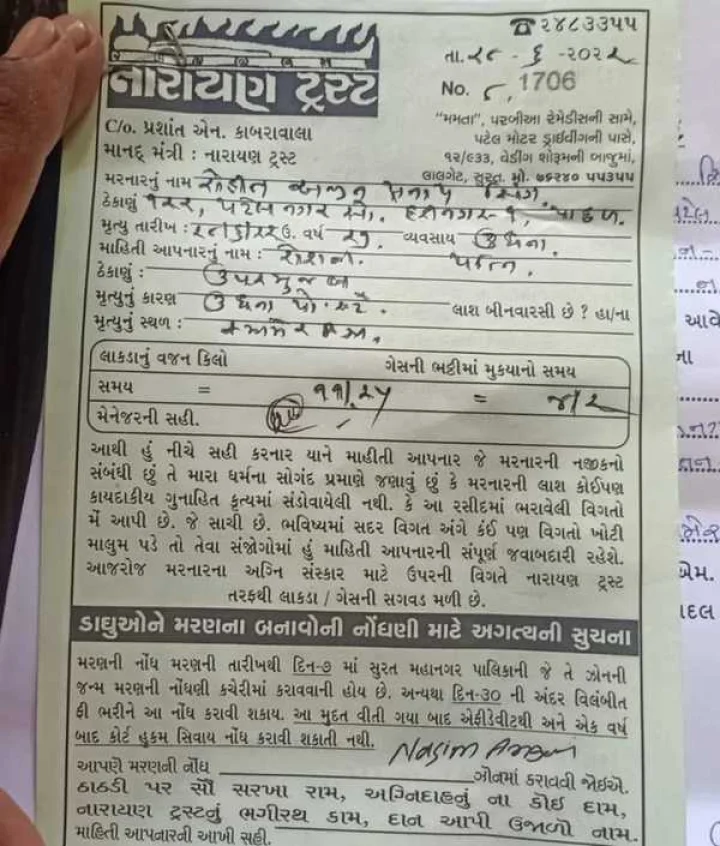 ☎ ૨૪૮૩૩૫૫
નારાયણ ટ્રસ્ટ
તા. ૨૯ - ૬ -૨૦૨૨
No. 1706
C/o. પ્રશાંત એન. કાબરાવાલા
માનદ્ મંત્રી : નારાયણ ટ્રસ્ટ
"મમતા", પરબીઆ રેમેડીસની સામે,
પટેલ મોટર ડ્રાઈવીંગની પાસે,
૧૨/૯૩૩, વેડીંગ શોરૂમની બાજુમાં,
લાલગેટ, સુરત. મો. ૭૬૨૪૦ ૫૫૩૫૫
મરનારનું નામ
ઠેકાણું ૧૨૨, પટેલ નગર સો. હરીનગર-૧,
મૃત્યુ તારીખ : ઉ. વર્ષ ૨૭. વ્યવસાય
માહિતી આપનારનું નામ :
ઠેકાણું : ઉપર મુજબ
મૃત્યુનું કારણ લાશ બીનવારસી છે ? હા/ના
મૃત્યુનું સ્થળ :
લાકડાનું વજન કિલો ગેસની ભઠ્ઠીમાં મુકયાનો સમય
સમય = ૧૧/૨૫ = ૪/૨
મેનેજરની સહી.
આથી હું નીચે સહી કરનાર યાને માહીતી આપનાર જે મરનારની નજીકનો
સંબંધી છું તે મારા ધર્મના સોગંદ પ્રમાણે જણાવું છું કે મરનારની લાશ કોઈપણ
કાયદાકીય ગુનાહિત કૃત્યમાં સંડોવાયેલી નથી. કે આ રસીદમાં ભરાવેલી વિગતો
મેં આપી છે. જે સાચી છે. ભવિષ્યમાં સદર વિગત અંગે કંઈ પણ વિગતો ખોટી
માલુમ પડે તો તેવા સંજોગોમાં હું માહિતી આપનારની સંપૂર્ણ જવાબદારી રહેશે.
આજરોજ મરનારના અગ્નિ સંસ્કાર માટે ઉપરની વિગતે નારાયણ ટ્રસ્ટ
તરફથી લાકડા / ગેસની સગવડ મળી છે.
ડાઘુઓને મરણના બનાવોની નોંધણી માટે અગત્યની સુચના
મરણની નોંધ મરણની તારીખથી દિન-૭ માં સુરત મહાનગર પાલિકાની જે તે ઝોનની
જન્મ મરણની નોંધણી કચેરીમાં કરાવવાની હોય છે. અન્યથા દિન-૩૦ ની અંદર વિલંબીત
ફી ભરીને આ નોંધ કરાવી શકાય. આ મુદત વીતી ગયા બાદ એફીડેવીટથી અને એક વર્ષ
બાદ કોર્ટ હુકમ સિવાય નોંધ કરાવી શકાતી નથી.
Nasim
આપણે મરણની નોંધ ઝોનમાં કરાવવી જોઈએ.
ઠાઠડી પર સૌ સરખા રામ, અગ્નિદાહનું ના કોઈ દામ,
નારાયણ ટ્રસ્ટનું ભગીરથ કામ, દાન આપી ઉજાળો નામ.
માહિતી આપનારની આખી સહી.